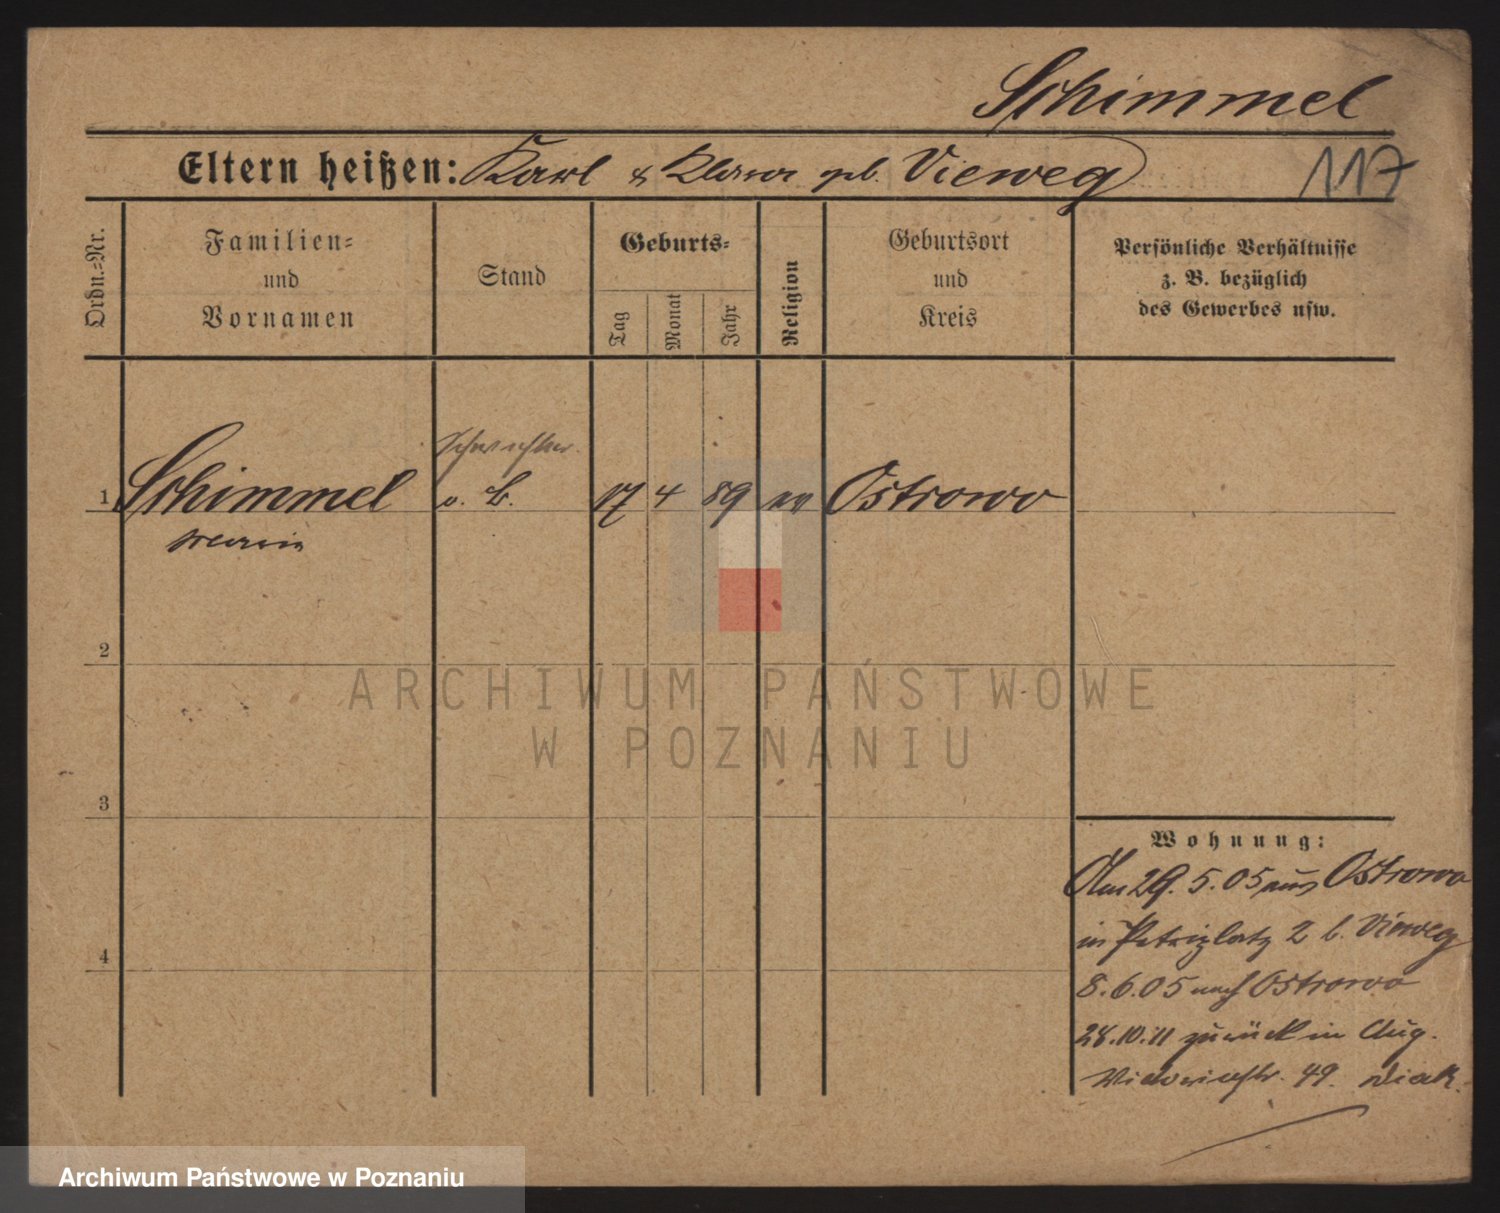 Schimmel
Eltern heißen: Karl & Klara geb. Vieweg
117
Ordn.=Nr.
Familien=
und
Vornamen
Stand
Geburts=
Tag
Monat
Jahr
Religion
Geburtsort
und
Kreis
Persönliche Verhältnisse
z. B. bezüglich
des Gewerbes usw.
Schwester
1 Schimmel o. B. 17 4 89 ev Ostrowo
Maria
2
3
4
ARCHIWUM PAŃSTWOWE
W POZNANIU
Wohnung:
Am 29. 5. 05 aus Ostrowo
in Petriplatz 2 b. Vieweg
8. 6. 05 nach Ostrowo
28. 10. 11 zurück in Aug.
Victoriastr. 49. Diak.
Archiwum Państwowe w Poznaniu